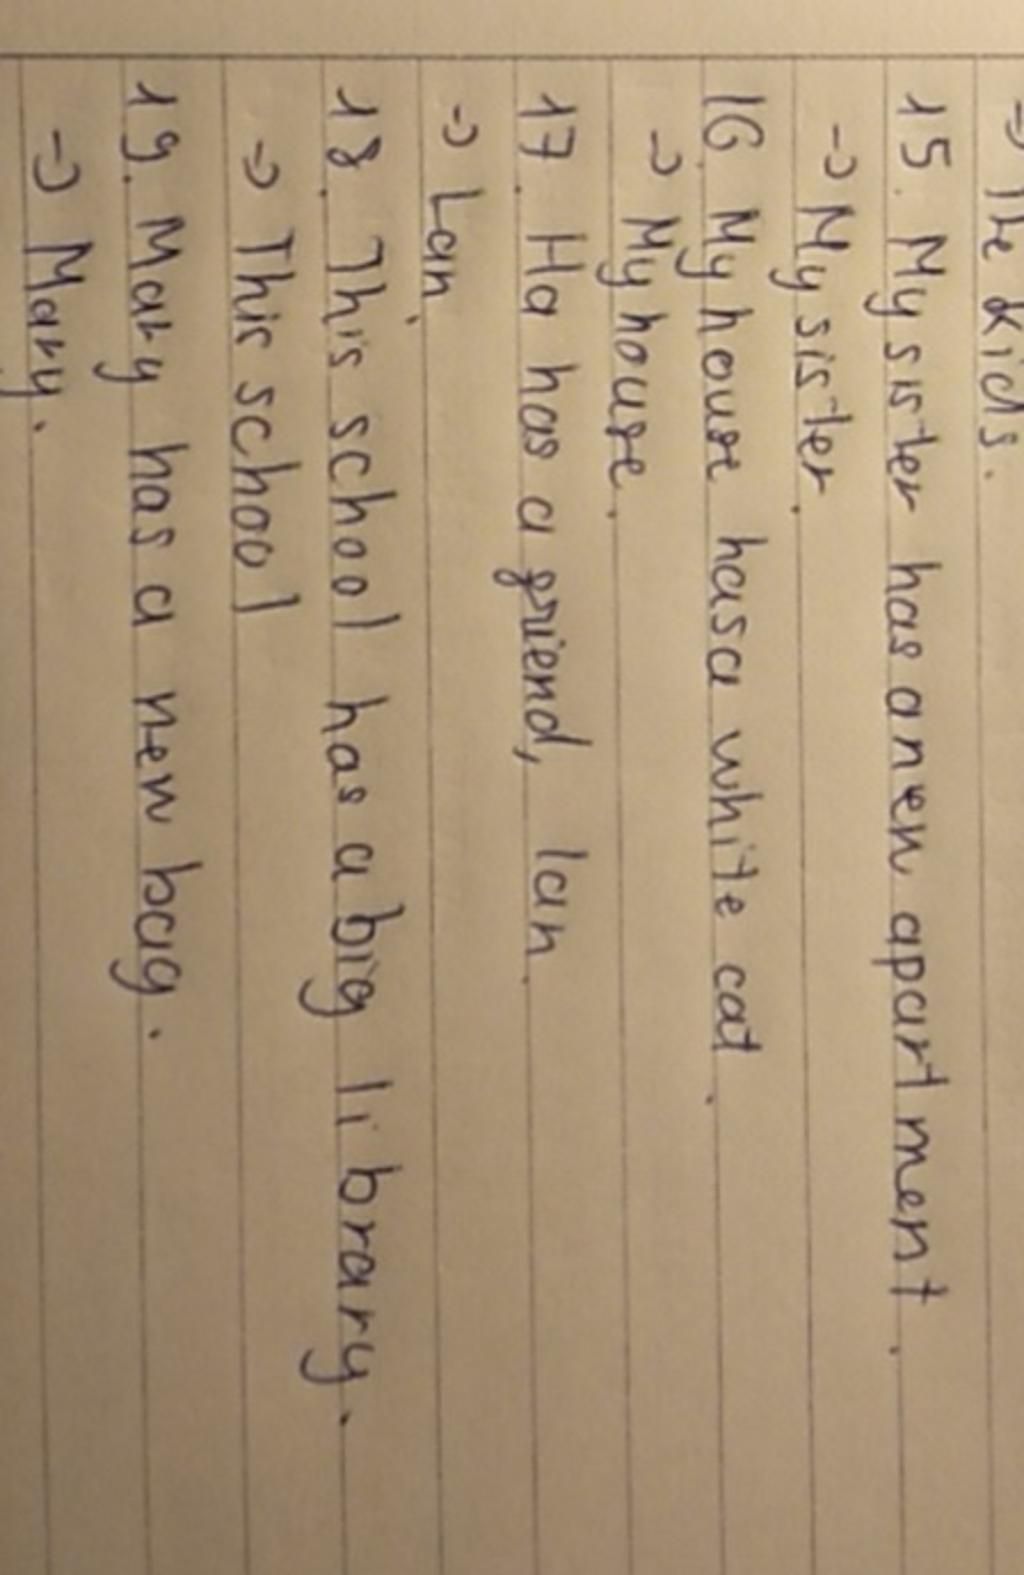 → The kids.
15. My sister has a new apartment.
→ My sister.
16. My house has a white cat.
→ My house.
17. Ha has a friend, lan.
→ Lan.
18. This school has a big library.
→ This school
19. Mary has a new bag.
→ Mary.